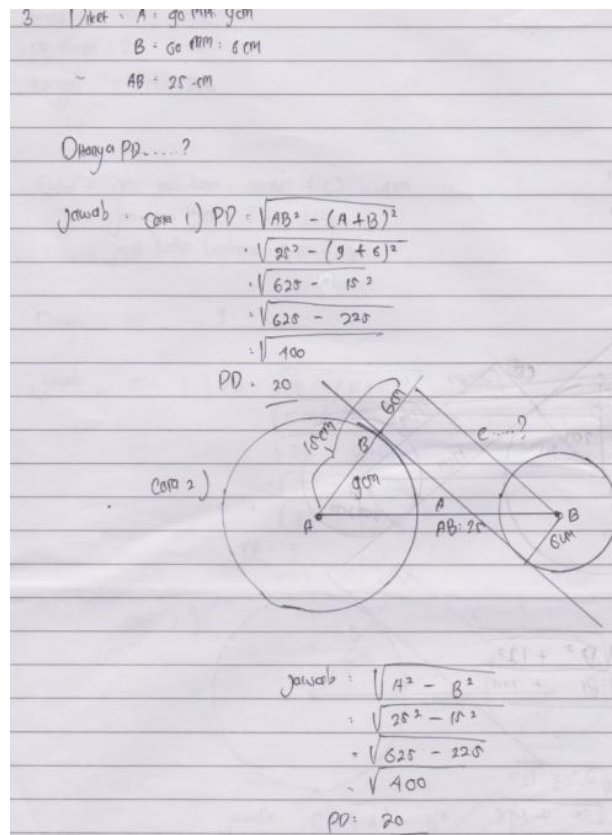 3 Diket : A : 90 mm : 9cm
B : 60 mm : 6 cm
AB : 25 cm
Ditanya PD.....?
Jawab : Cara 1) PD = √AB² - (A + B)²
: √25² - (9 + 6)²
: √625 - 15²
: √625 - 225
: √400
PD : 20
Cara 2)
15cm
6cm
B
9cm
A
e.....?
A
AB : 25
B
6cm
Jawab : √A² - B²
: √25² - 15²
: √625 - 225
: √400
PD : 20